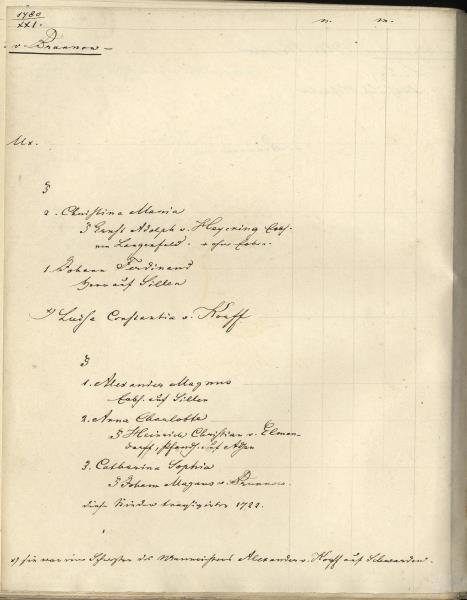 1780
XXI.
n. m.
v Brunnow
Ux.
§
2. Christina Maria
§ Ernst Adolph v. Heyking Erbh.
von Langenfeld. + ohne Erben.
1. Johann Ferdinand
Herr auf Sillen
*) Luisa Constantia v. Korff
§
1. Alexander Magnus
Erbh. auf Sillen
2. Anna Charlotte
§ Heinrich Christian v. Elmen-
dorff, Pfandh. auf
3. Catharina Sophia
§ Johann Magnus v. Brunnow
diese Kinder transigirten 1722.
*) sie war eine Schwester des Alexander v. Korff auf